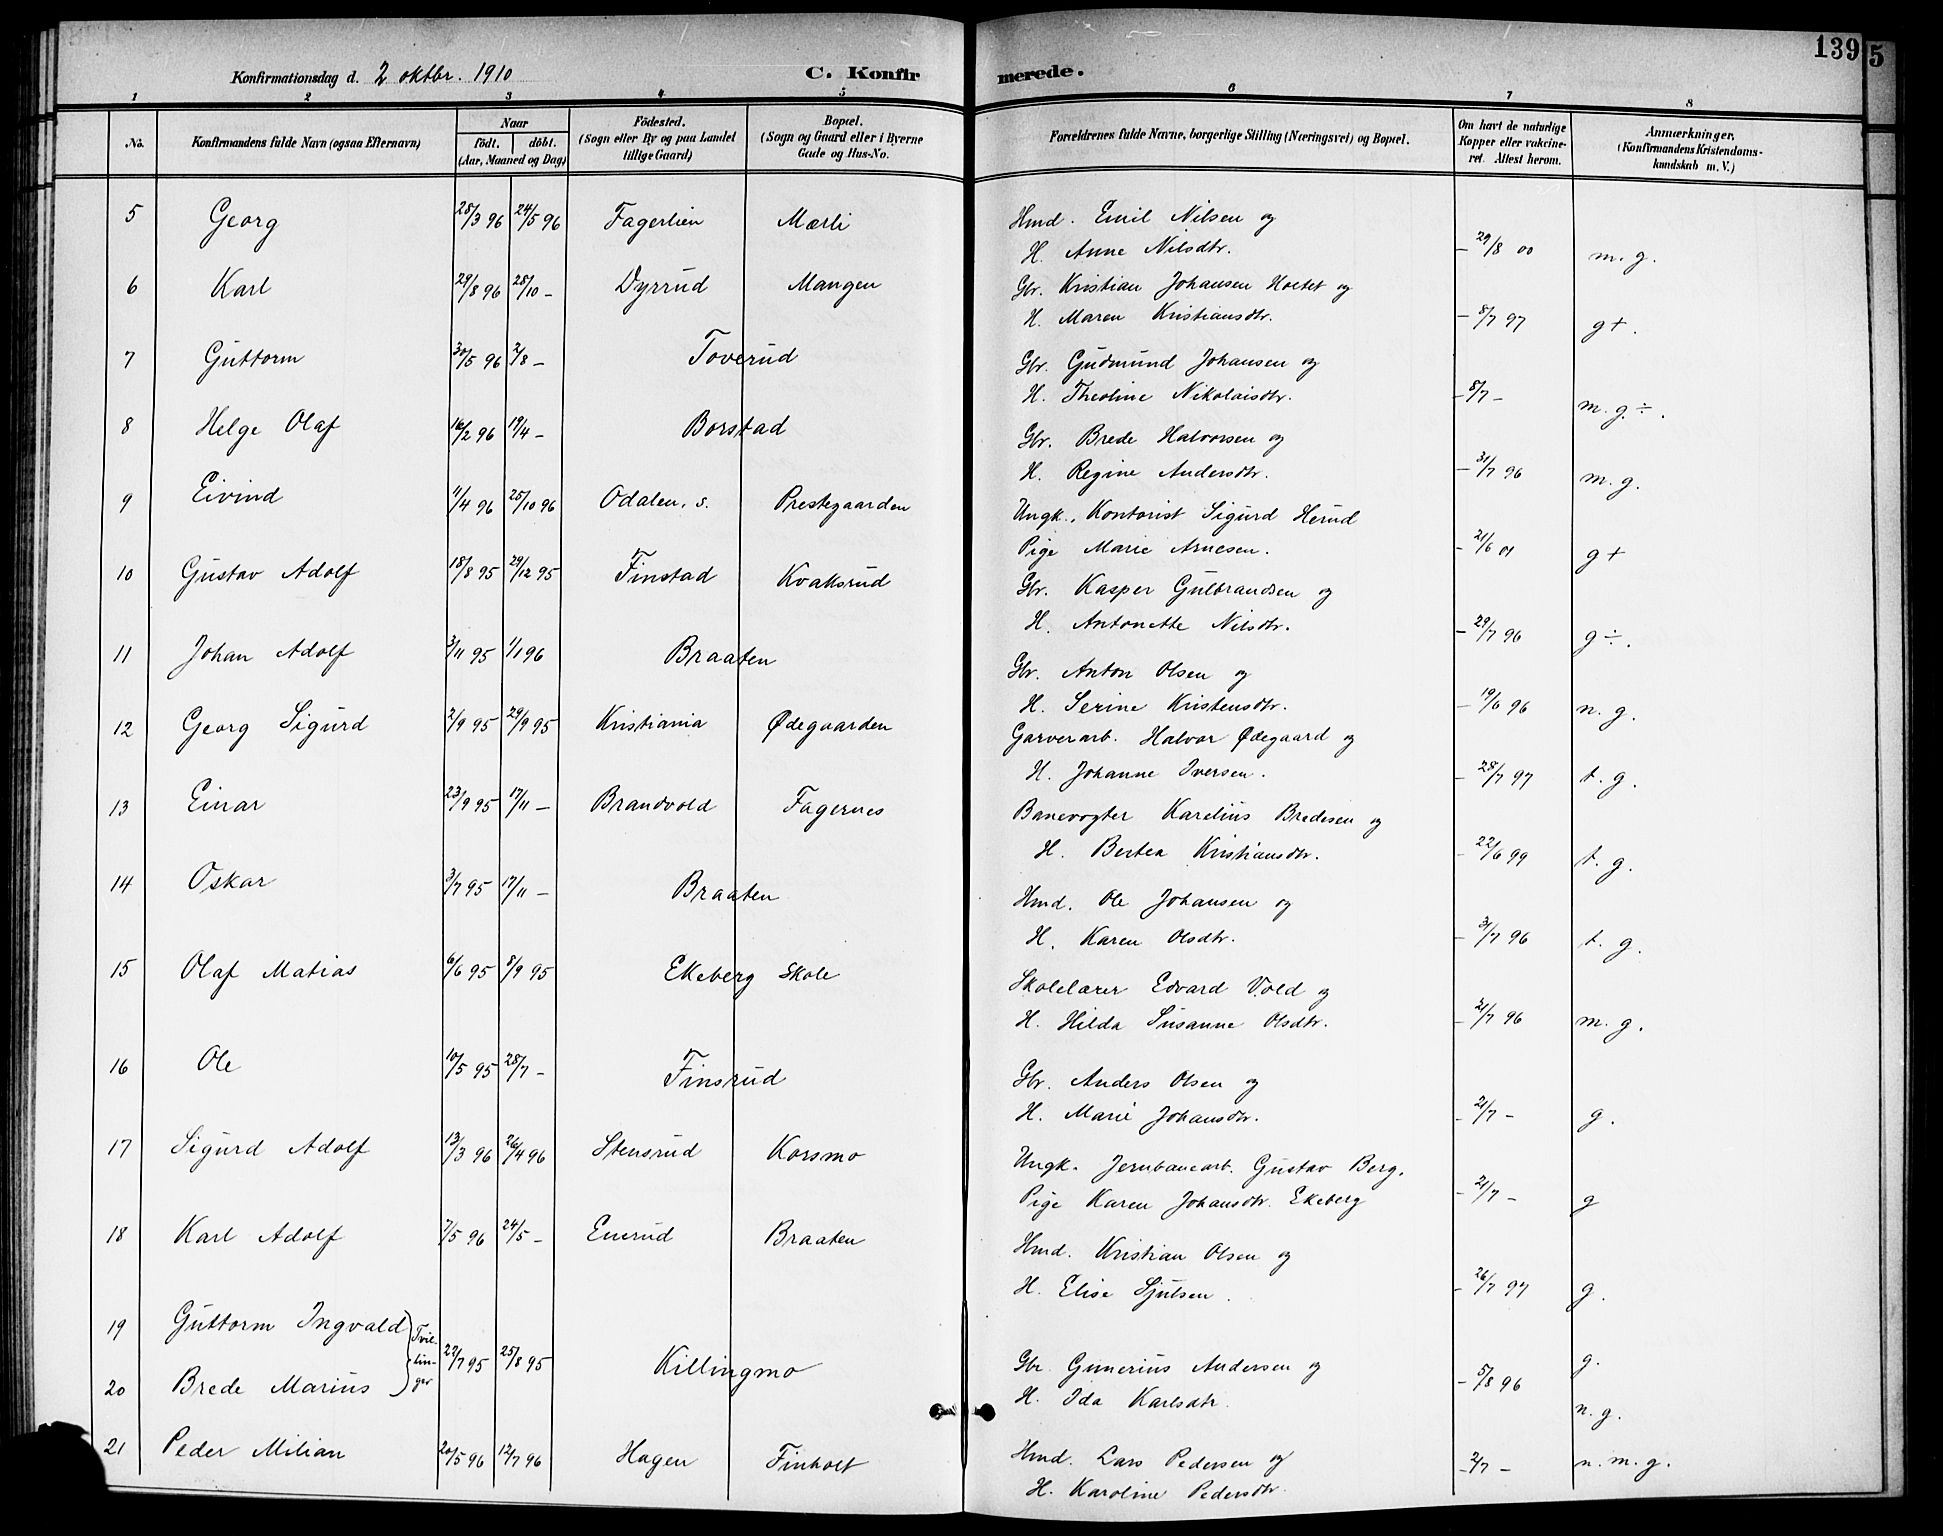 139
5
Konfirmationsdag d. 2 oktbr. 1910 C. Konfirmerede.
1 2 3 4 5 6 7 8
No. Konfirmandens fulde Navn (ogsaa Efternavn) Naar födt. döbt. (Aar, Maaned og Dag) Födested. (Sogn eller By og paa Landet tillige Gaard) Bopæl. (Sogn og Gaard eller i Byerne Gade og Hus-No. Forældrenes fulde Navne, borgerlige Stilling (Næringsvei) og Bopæl. Om havt de naturlige Kopper eller vakcineret. Attest herom. Anmærkninger, (Konfirmandens Kristendomskundskab m. V.)
5 Georg 28/3 96 24/5 96 Fagerlien Mærli Hmd. Emil Nilsen og
H. Anne Nilsdtr. – 29/8 00 m. g.
6 Karl 29/8 96 28/10 – Dyrrud Mangen Gbr. Kristian Johansen Holtet og
H. Maren Kristiansdtr. – 8/7 97 g+.
7 Guttorm 30/5 96 2/8 – Toverud Gbr. Gudmund Johansen og
H. Theoline Nikolaisdtr. – 8/7 – m. g ÷.
8 Helge Olaf 16/2 96 19/4 – Borstad Gbr. Brede Halvorsen og
H. Regine Andersdtr. – 31/7 96 m. g.
9 Eivind 11/4 96 25/10 96 Odalen, s. Prestegaarden Ungk., Kontorist Sigurd Herud
Pige Marie Arnesen. – 21/6 01 g+
10 Gustav Adolf 18/8 95 29/12 95 Finstad Kvaksrud Gbr. Kasper Gulbrandsen og
H. Antonette Nilsdtr. – 29/7 96 g ÷.
11 Johan Adolf 3/11 95 1/1 96 Braaten Gbr. Anton Olsen og
H. Serine Kristensdtr. – 19/6 96 n. g.
12 Georg Sigurd 2/9 95 29/9 95 Kristiania Ødegaarden Garverarb. Halvor Ødegaard og
H. Johanne Iversen. – 28/7 97 t. g.
13 Einar 23/9 95 17/11 – Brandvold Fagernes Banevogter Karelius Bredesen og
H. Bertea Kristiansdtr. – 22/6 99 t. g.
14 Oskar 3/7 95 17/11 – Braaten Hmd. Ole Johansen og
H. Karen Olsdtr. – 3/7 96 t. g.
15 Olaf Matias 6/6 95 8/9 95 Ekeberg Skole Skolelærer Edvard Vold og
H. Hilda Susanne Olsdtr. – 21/7 96 m. g.
16 Ole 10/5 95 28/7 – Finsrud Gbr. Anders Olsen og
H. Marie Johansdtr. – 21/7 – g.
17 Sigurd Adolf 13/3 96 26/4 96 Stensrud Korsmo Ungk. Jernbanearb. Gustav Berg.
Pige Karen Johansdtr. Ekeberg – 21/7 – g
18 Karl Adolf 7/5 96 24/5 – Enerud Braaten Hmd. Kristian Olsen og
H. Elise Sjulsen. – 26/7 97 g.
19 Guttorm Ingvald Tvillinger 22/7 95 25/8 95 Killingmo Gbr. Gunerius Andersen og g.
20 Brede Marius H. Ida Karlsdtr – 5/8 96 n. g.
21 Peder Milian 20/5 96 12/7 96 Hagen Finholt Hmd. Lars Pedersen og – 2/7 – n. m. g.
H. Karoline Pedersdtr.